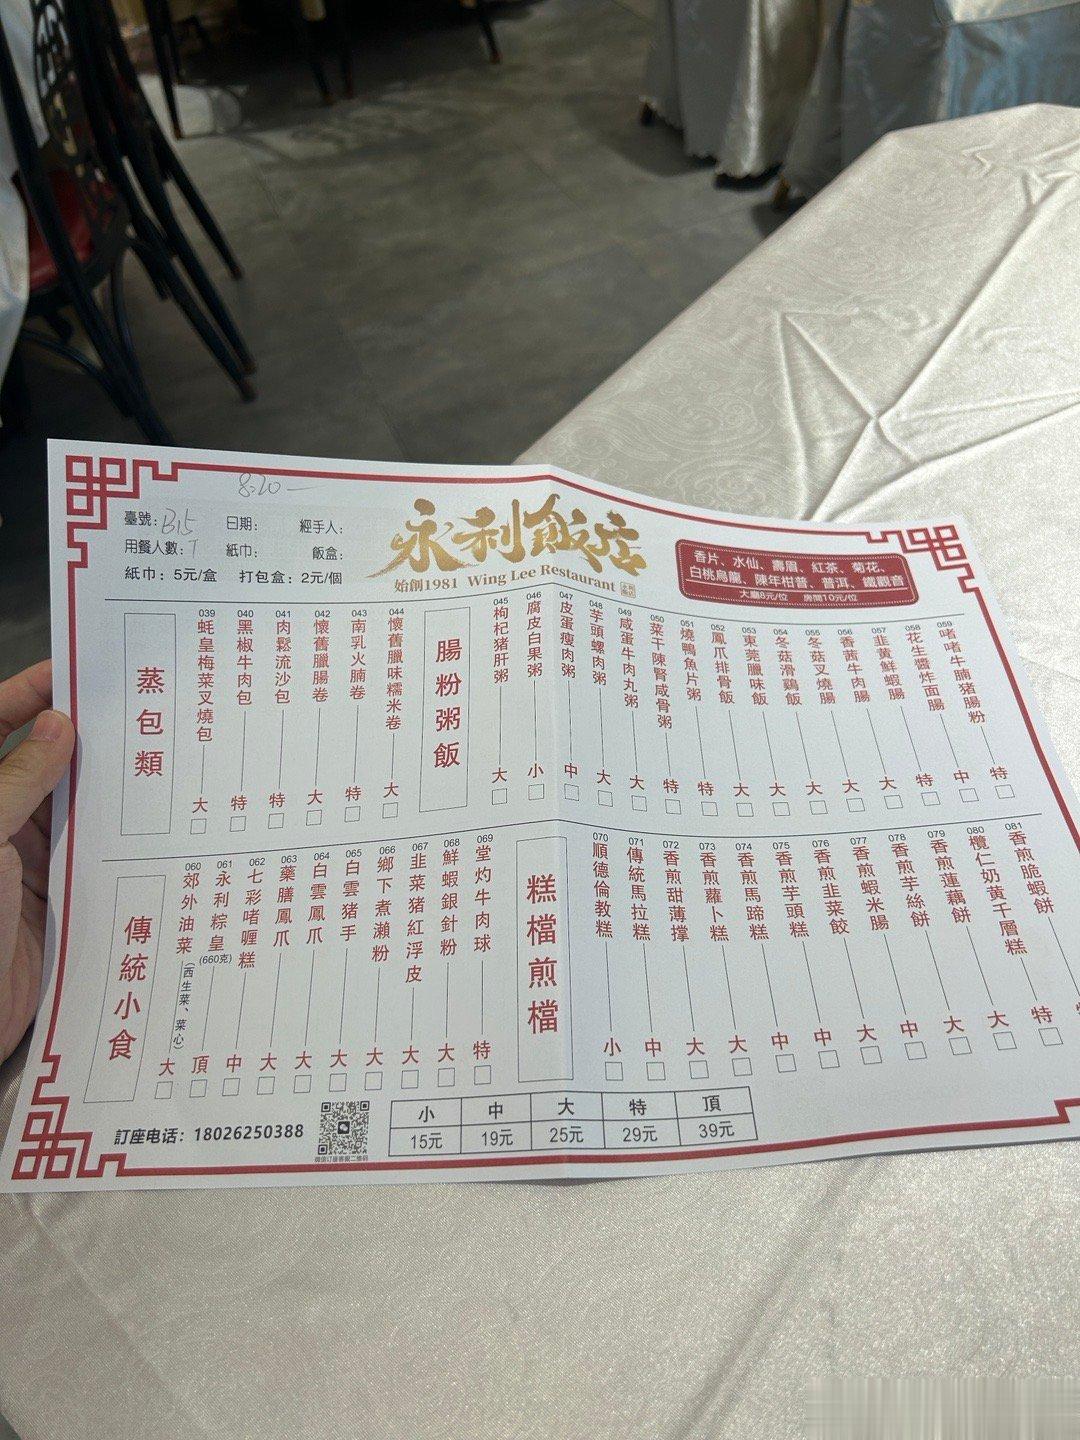 8:20
臺號: B15 日期: 經手人:
用餐人數: 紙巾: 飯盒:
紙巾: 5元/盒 打包盒: 2元/個
永利飯店
始創1981 Wing Lee Restaurant
香片、水仙、壽眉、紅茶、菊花、
白桃烏龍、陳年柑普、普洱、鐵觀音
大廳8元/位 房間10元/位
蒸包類
039 蚝皇梅菜叉燒包 大
040 黑椒牛肉包 特
041 肉鬆流沙包 特
042 懷舊臘腸卷 大
043 南乳火腩卷 特
044 懷舊臘味糯米卷 大
腸粉粥飯
045 枸杞猪肝粥 大
046 腐皮白果粥 小
047 皮蛋瘦肉粥 中
048 芋頭螺肉粥 大
049 咸蛋牛肉丸粥 大
050 菜干陳腎咸骨粥 特
051 燒鴨魚片粥 特
052 鳳爪排骨飯 大
053 東莞臘味飯 大
054 冬菇滑鷄飯 大
055 冬菇叉燒腸 大
056 香茜牛肉腸 大
057 韭黄鮮蝦腸 大
058 花生醬炸面腸 特
059 啫啫牛腩猪腸粉 中
特
傳統小食
060 郊外油菜 (西生菜、菜心) 大
061 永利粽皇 (660克) 頂
062 七彩啫喱糕 中
063 藥膳鳳爪 大
064 白雲鳳爪 大
065 白雲猪手 大
066 鄉下煮瀨粉 大
067 韭菜猪紅浮皮 大
068 鮮蝦銀針粉 大
069 堂灼牛肉球 特
糕檔煎檔
070 順德倫教糕 小
071 傳統馬拉糕 中
072 香煎甜薄撑 大
073 香煎蘿卜糕 大
074 香煎馬蹄糕 中
075 香煎芋頭糕 中
076 香煎韭菜餃 大
077 香煎蝦米腸 中
078 香煎芋絲餅 大
079 香煎蓮藕餅 大
080 欖仁奶黄千層糕 特
081 香煎脆蝦餅
訂座电话: 18026250388
小 中 大 特 頂
15元 19元 25元 29元 39元